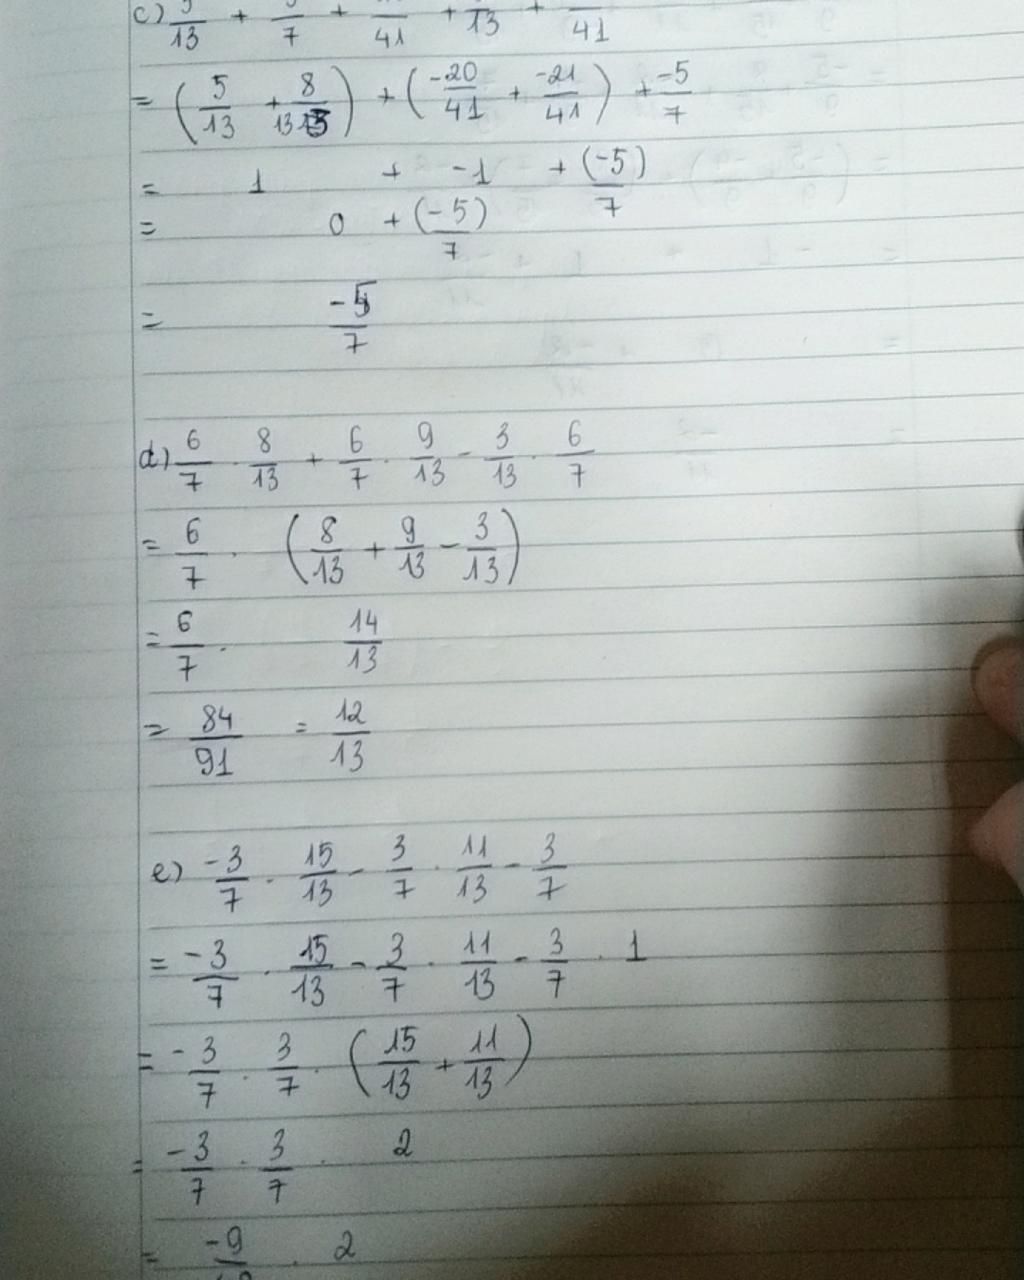 c) 5/13 + 5/7 + /41 + /13 + /41
= (5/13 + 8/13) + (-20/41 + -21/41) + -5/7
= 1 + -1 + (-5)/7
= 0 + (-5)/7
= -5/7
d) 6/7 . 8/13 + 6/7 . 9/13 - 3/13 . 6/7
= 6/7 . (8/13 + 9/13 - 3/13)
= 6/7 . 14/13
= 84/91 = 12/13
e) -3/7 . 15/13 - 3/7 . 11/13 - 3/7
= -3/7 . 15/13 - 3/7 . 11/13 - 3/7 . 1
= -3/7 . 3/7 . (15/13 + 11/13)
= -3/7 . 3/7 . 2
= -9/ . 2